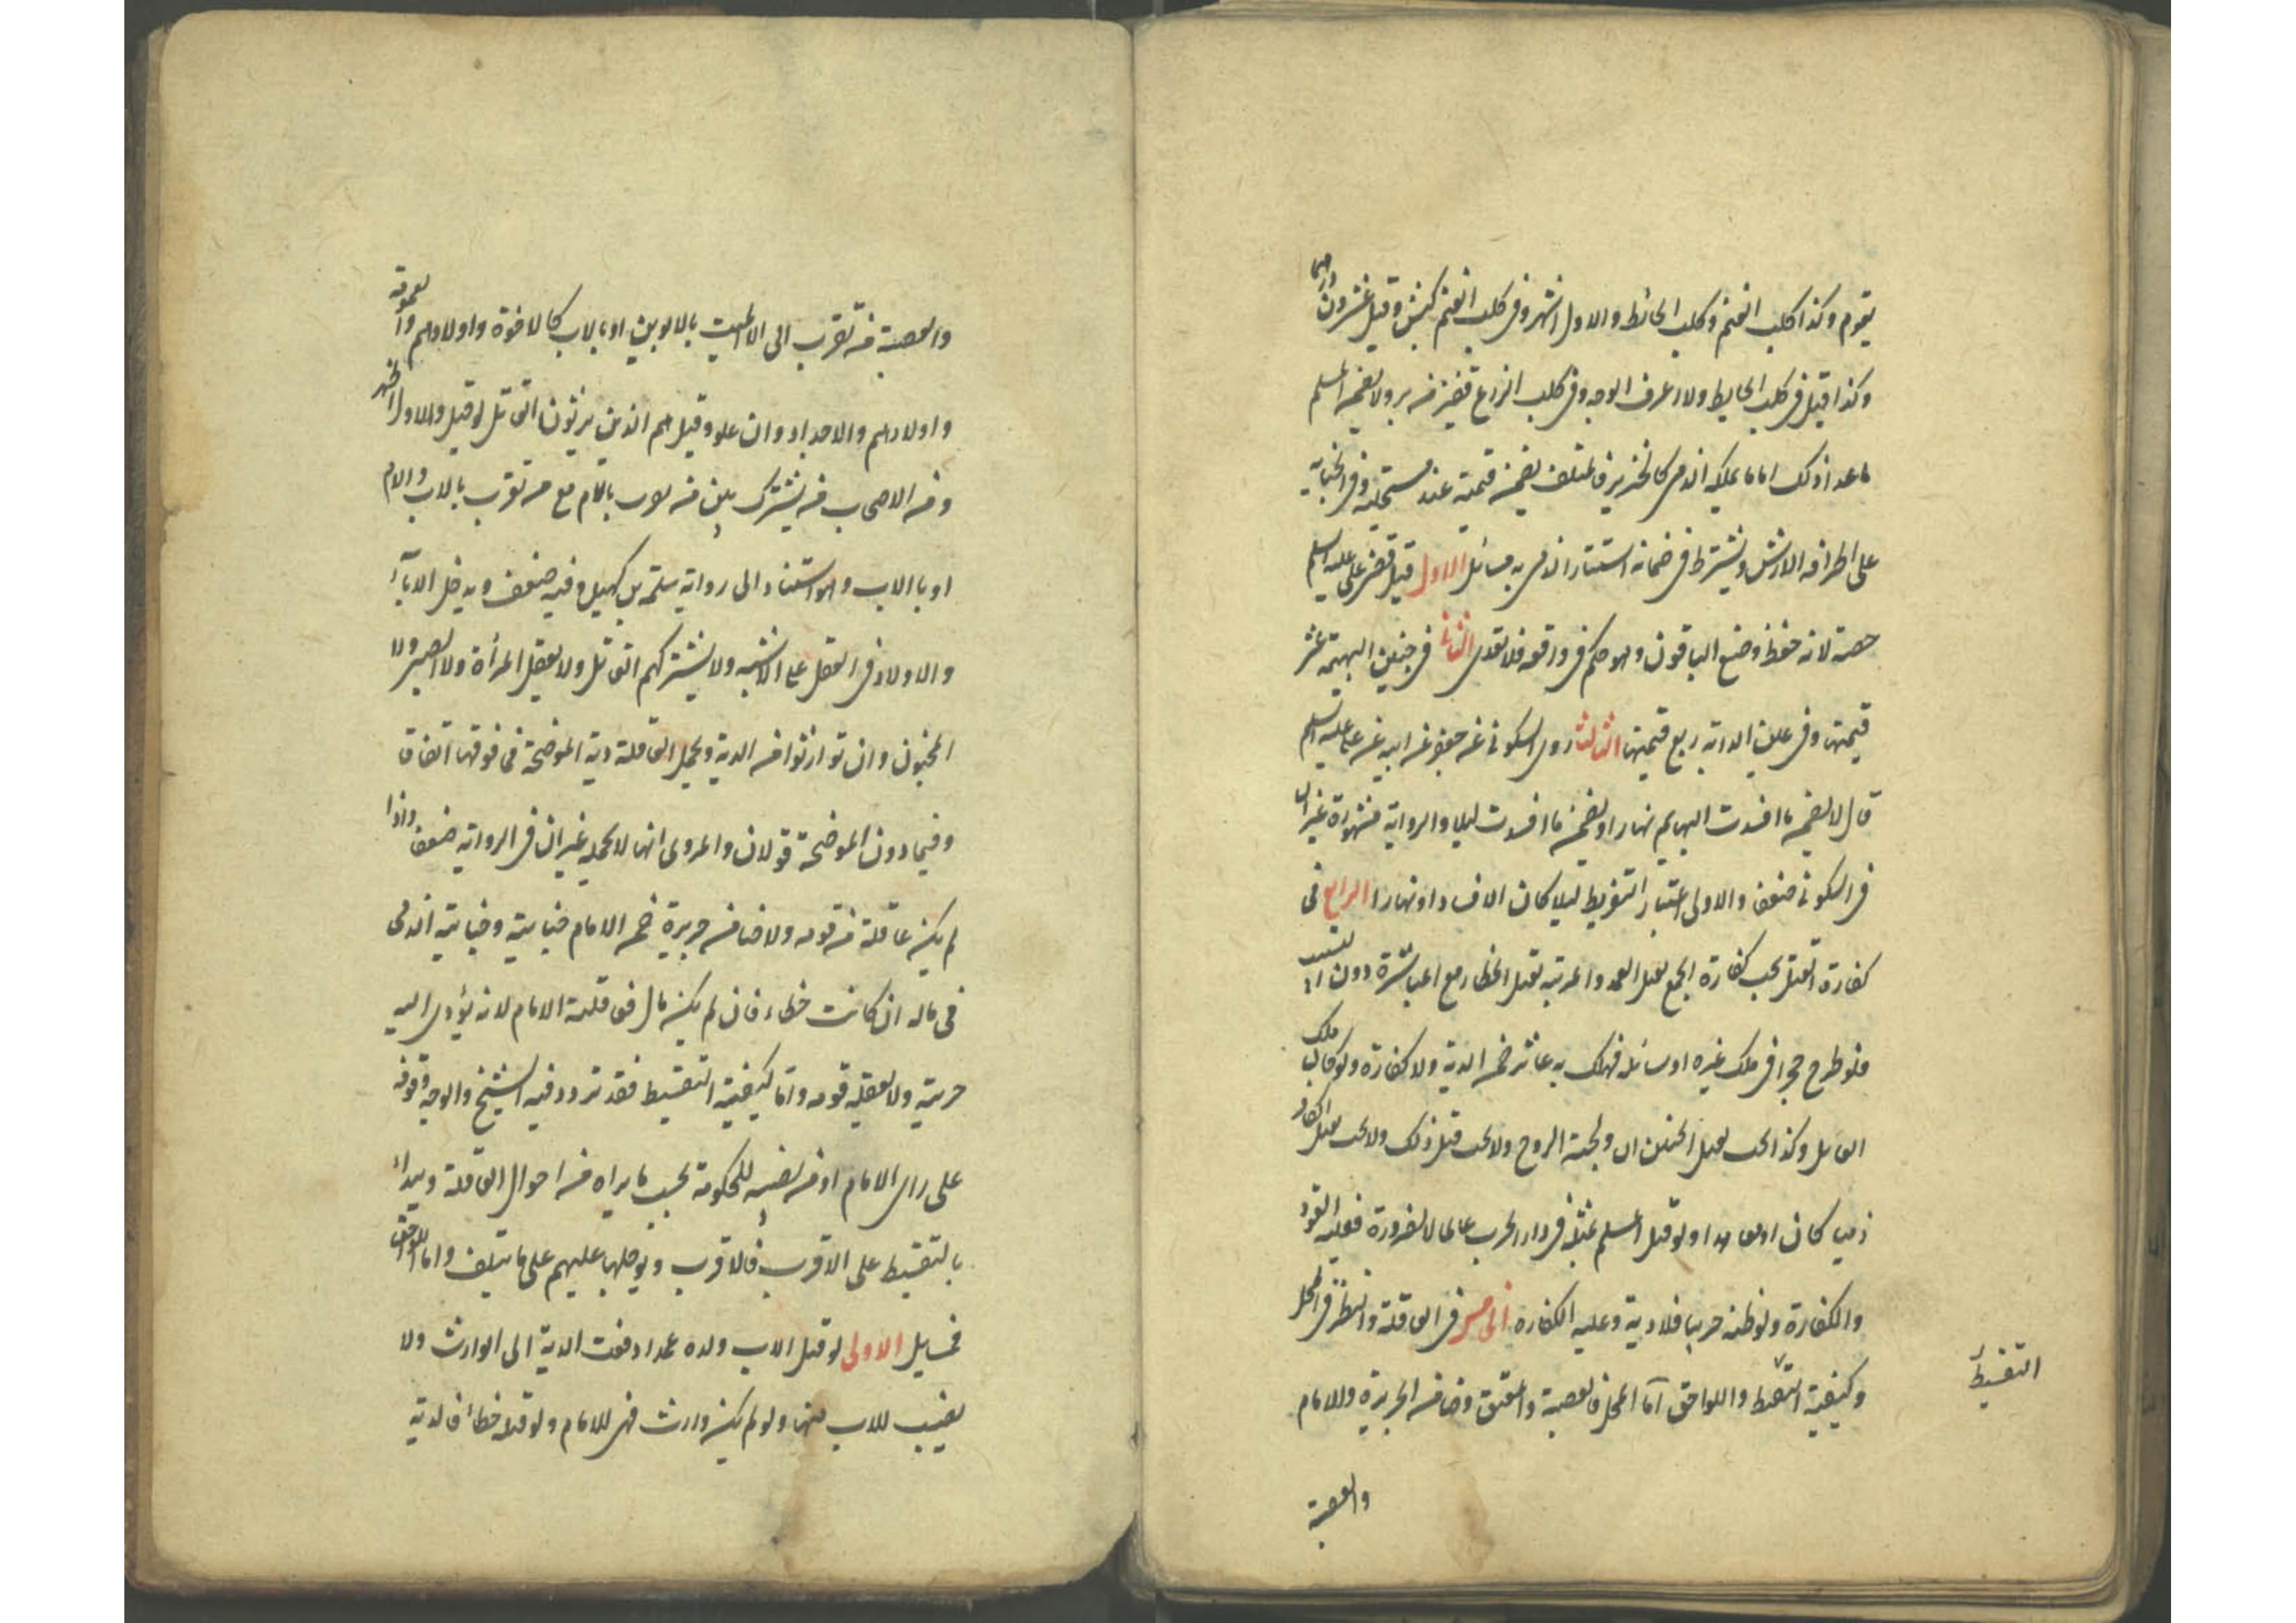 يقوم وكذا كلب الغنم وكلب الحائط والاول اشهر وفى كلب الغنم كبش وقيل عشرون درهما
وكذا قيل فى كلب الحايط ولا اعرف الوجه وفى كلب الزرع قفيز من بر ولا يضمن المسلم
ما عدا ذلك اما ما يملكه الذمى كالخنزير فالمتلف يضمن قيمته عند مستحليه وفى الجناية
على اطرافه الارش ويشترط فى ضمانه استتار الذمى به مسائل الاول قيل قضى على عليه السلم
حصته لانه حفظ وضيع الباقون وهو حكم فى واقعه فلا تعدى الثانى فى جنين البهيمه عشر
قيمتها وفى عين الدابه ربع قيمتها الثالث روى السكونى عن جعفر عن ابيه عن على عليه السلم
قال لا يضمن ما افسدت البهايم نهارا ويضمن ما افسدت ليلا والرواية مشهورة غير ان
فى السكونى ضعف والاولى اعتبار التفريط ليلا كان الافساد او نهارا الرابع فى
كفارة القتل يجب كفارة الجمع بقتل العمد والمرتبه بقتل الخطاء مع المباشرة دون التسبيب
فلو طرح حجرا فى ملك غيره او سابله فهلك به عاثر ضمن الدية ولا كفارة ولو كان ملك
القاتل وكذا يجب بقتل الجنين ان ولجته الروح ولا يجب قبل ذلك ولا يجب بقتل الكافر
ذميا كان او معاهدا ولو قتل المسلم مثله فى دار الحرب عالما لا لضرورة فعليه القود
والكفارة ولو ظنه حربيا فلا دية وعليه الكفاره الخامس فى العاقلة والنظر فى المحل
وكيفية التقسط واللواحق اما المحل فالعصبة والمعتق وضامن الجريرة والامام
التقسيط
والعصبة
والعصبة من تقرب الى الميت بالابوين او بالاب كالاخوة واولادهم والعمومة
واولادهم والاجداد وان علوا وقيل هم الذين يرثون القاتل لو قتل والاول اظهر
ومن الاصحاب من يشترك بين من يتقرب بالام مع من تقرب بالاب والام
او بالاب وهو استناد الى رواية سلمة بن كهيل وفيه ضعف ويدخل الاباء
والاولاد فى العقل على الاشبه ولا يشتركهم القاتل ولا يعقل المرأة ولا الصبى ولا
المجنون وان توارثوا من الدية ويحمل العاقلة دية الموضحة فما فوقها اتفاقا
وفيما دون الموضحة قولان والمروى انها لا تحمله غير ان فى الرواية ضعف واذا
لم يكن عاقلة من قومه ولا ضامن جريرة ضمن الامام جنايته وجناية الذمى
فى ماله ان كانت خطاء فان لم يكن مال فعاقلته الامام لانه يؤدى اليه
جزيته ولا يعقله قومه واما كيفية التقسيط فقد تردد فيه الشيخ والوجه وقوفه
على راى الامام او من نصبه للحكومة بحسب ما يراه من احوال العاقلة ويبداء
بالتقسيط على الاقرب فالاقرب ويؤجلها عليهم على ما سلف واما اللواحق
فمسايل الاولى لو قتل الاب ولده عمدا دفعت الدية الى الوارث ولا
نصيب للاب منها ولو لم يكن وارث فهى للامام ولو قتله خطأ فالدية